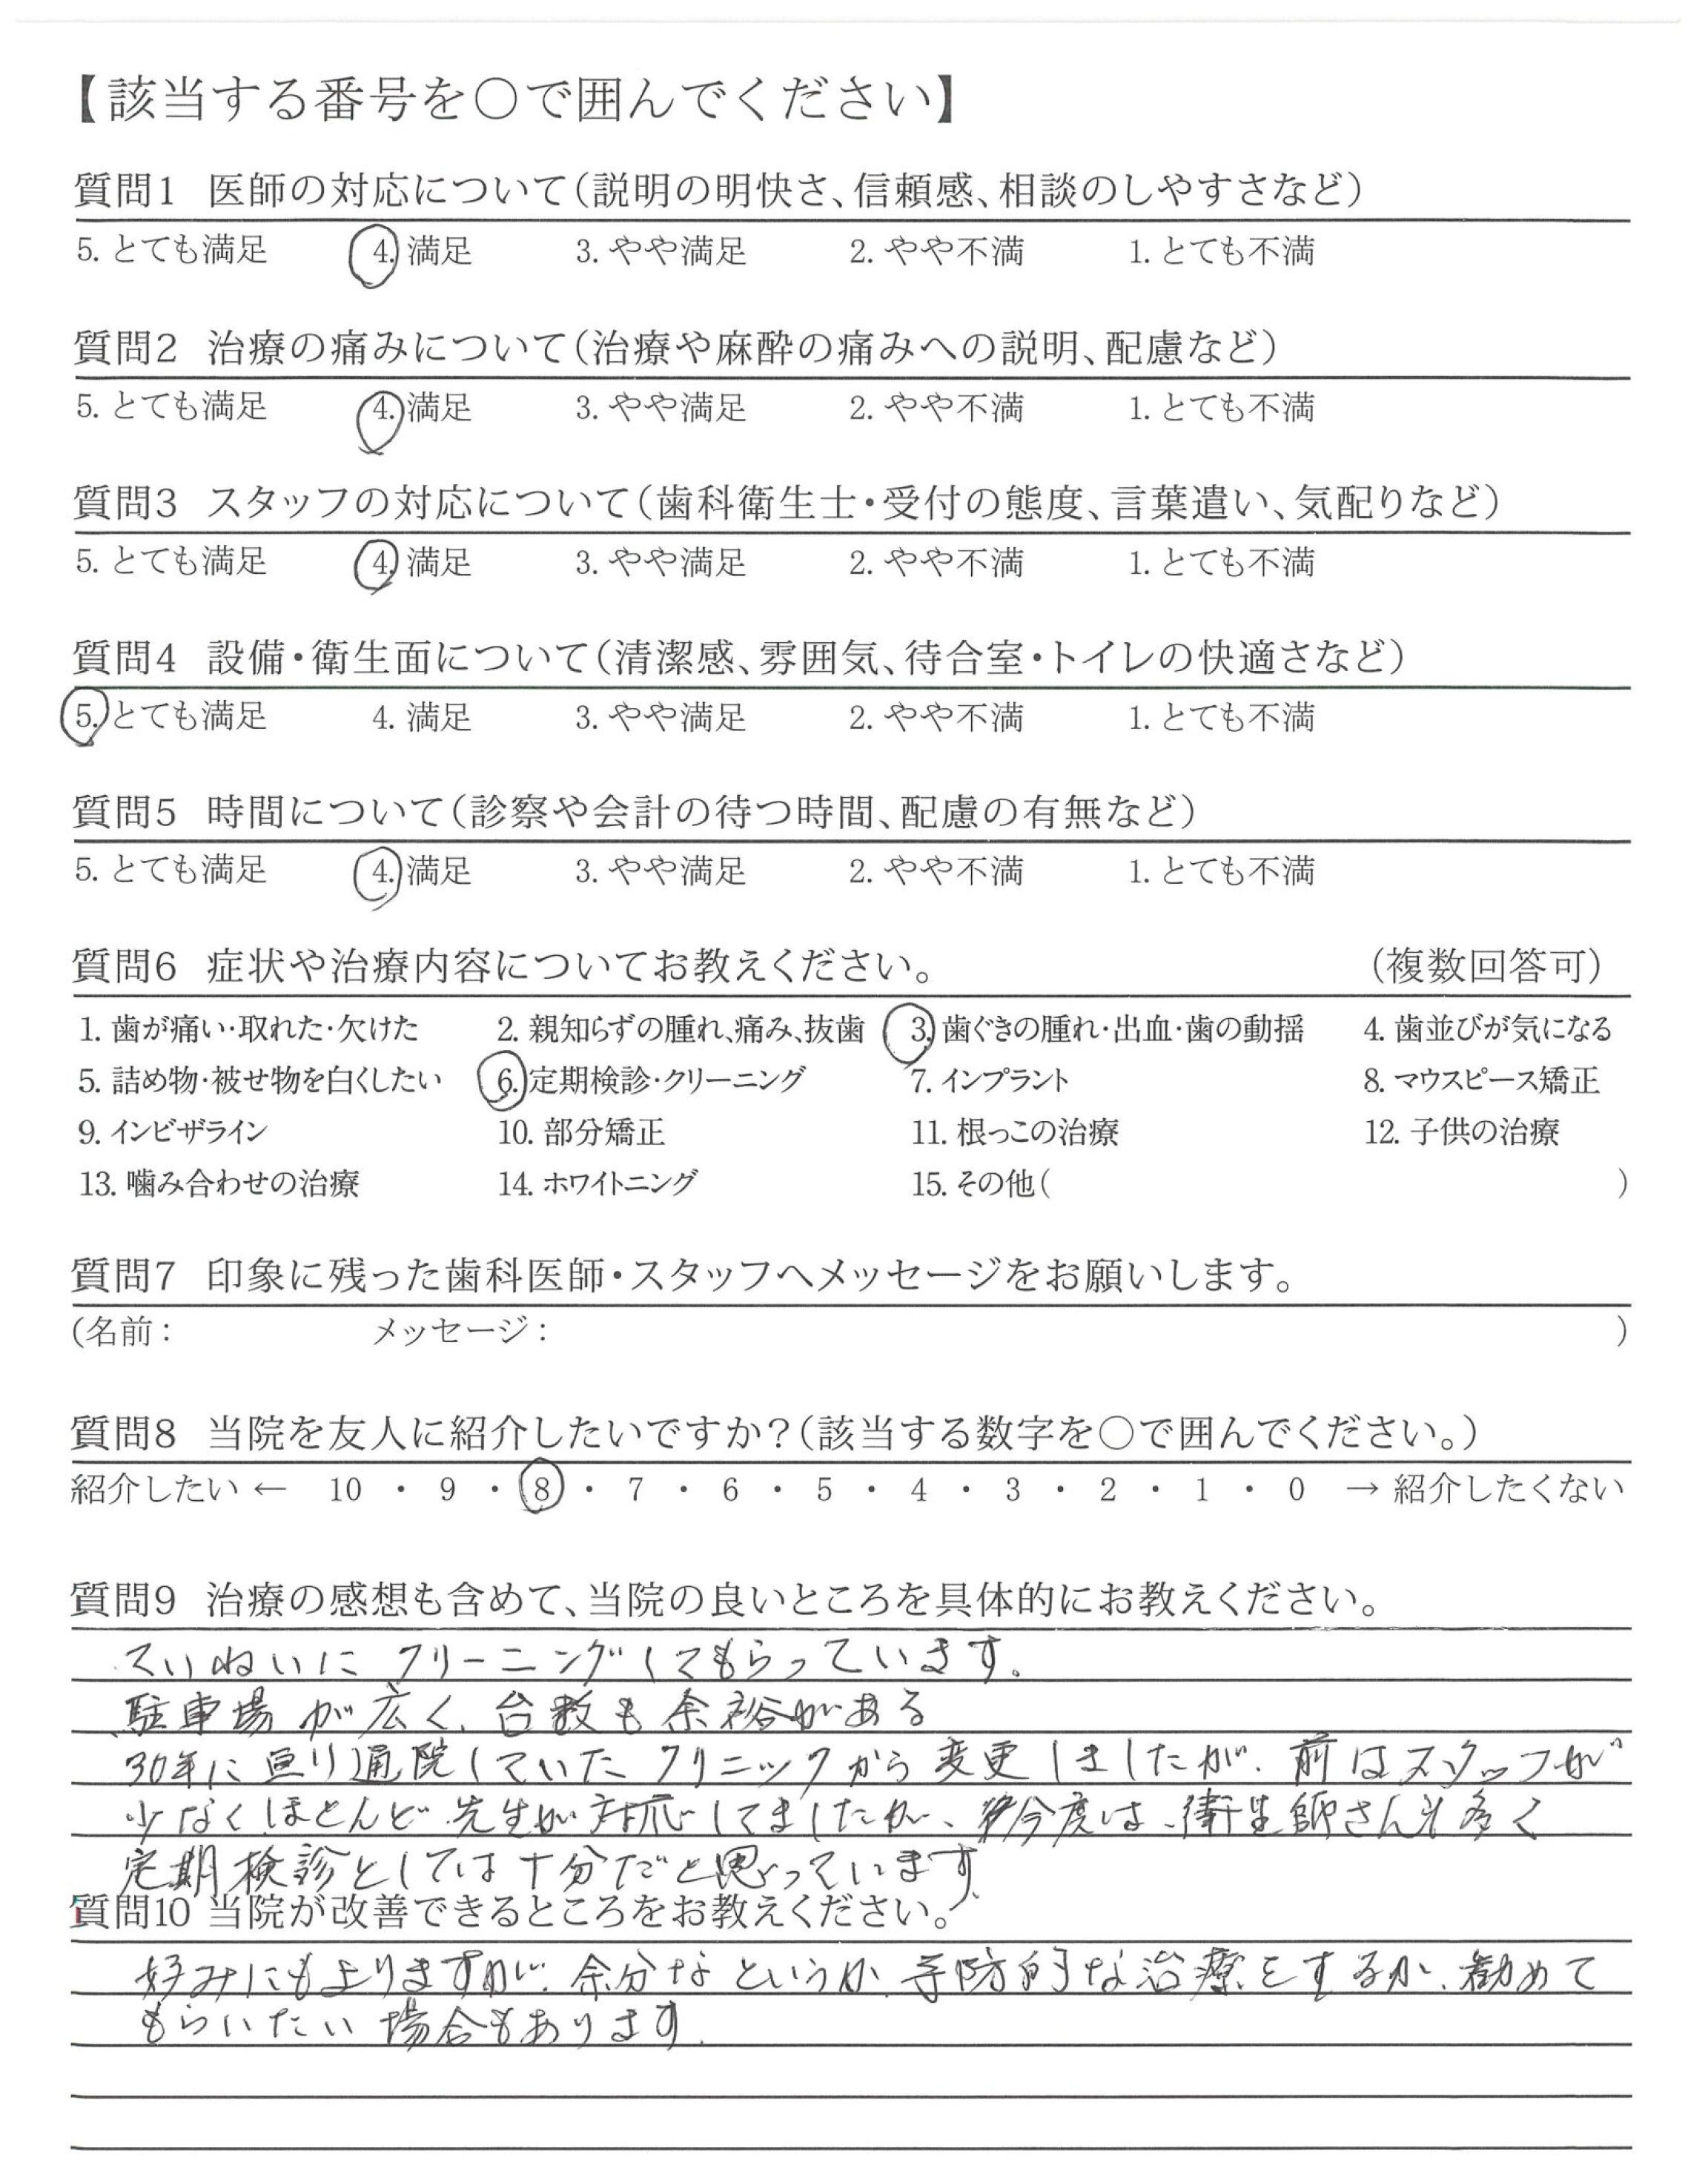 【該当する番号を〇で囲んでください】
質問1 医師の対応について(説明の明快さ、信頼感、相談のしやすさなど)
5. とても満足 4. 満足 3. やや満足 2. やや不満 1. とても不満
質問2 治療の痛みについて(治療や麻酔の痛みへの説明、配慮など)
5. とても満足 4. 満足 3. やや満足 2. やや不満 1. とても不満
質問3 スタッフの対応について(歯科衛生士・受付の態度、言葉遣い、気配りなど)
5. とても満足 4. 満足 3. やや満足 2. やや不満 1. とても不満
質問4 設備・衛生面について(清潔感、雰囲気、待合室・トイレの快適さなど)
5. とても満足 4. 満足 3. やや満足 2. やや不満 1. とても不満
質問5 時間について(診察や会計の待つ時間、配慮の有無など)
5. とても満足 4. 満足 3. やや満足 2. やや不満 1. とても不満
質問6 症状や治療内容についてお教えください。 (複数回答可)
1. 歯が痛い・取れた・欠けた 2. 親知らずの腫れ、痛み、抜歯 3. 歯ぐきの腫れ・出血・歯の動揺 4. 歯並びが気になる
5. 詰め物・被せ物を白くしたい 6. 定期検診・クリーニング 7. インプラント 8. マウスピース矯正
9. インビザライン 10. 部分矯正 11. 根っこの治療 12. 子供の治療
13. 噛み合わせの治療 14. ホワイトニング 15. その他( )
質問7 印象に残った歯科医師・スタッフへメッセージをお願いします。
(名前: メッセージ: )
質問8 当院を友人に紹介したいですか?(該当する数字を〇で囲んでください。)
紹介したい ← 10 ・ 9 ・ 8 ・ 7 ・ 6 ・ 5 ・ 4 ・ 3 ・ 2 ・ 1 ・ 0 → 紹介したくない
質問9 治療の感想も含めて、当院の良いところを具体的にお教えください。
ていねいに クリーニングしてもらっています。
駐車場が広く、台数も余裕がある
30年に亘り通院していたクリニックから変更しましたが、前はスタッフが
少なくほとんど先生が対応してましたが、今度は、衛生師さんも多く
定期検診としては十分だと思っています。
質問10 当院が改善できるところをお教えください。
好みにもよりますが、余分なというか、予防的な治療をするか、勧めて
もらいたい場合もあります。